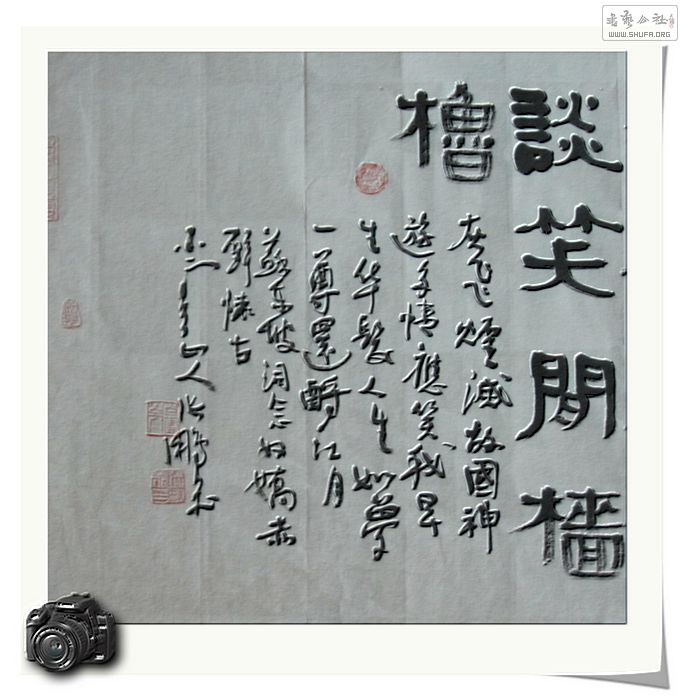 書藝公社
WWW.SHUFA.ORG
談笑間檣
櫓
灰飞煙滅故國神
遊多情應笑我早
生华髮人生如夢
一尊還酹江月
蘇东坡词念奴嬌赤
壁懷古
山人